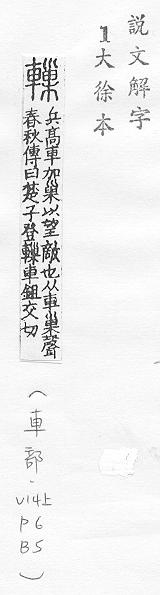 說文解字
1大徐本
轈 兵高車加巢以望敵也从車巢聲
春秋傳曰楚子登轈車鉏交切
(車部.V14上P6B5)